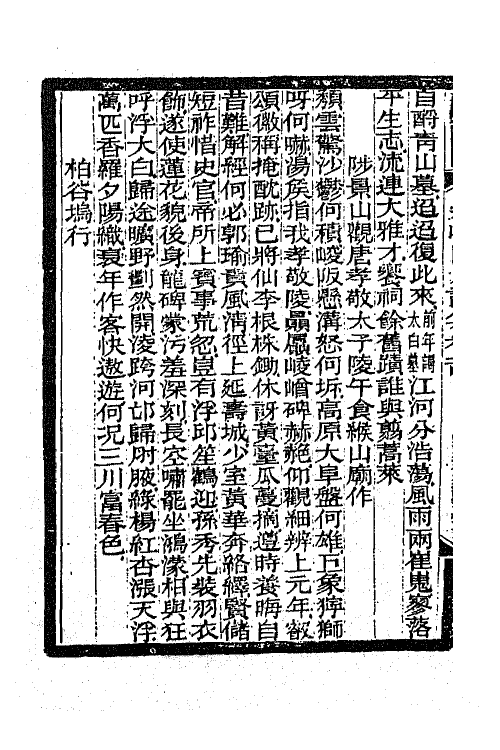 自酹青山墓迢迢復此來前年謁太白墓江河分浩蕩風雨兩崔嵬寥落
平生志流連大雅才饗祠餘舊蹟誰與翦蒿萊
陟景山觀唐孝敬太子陵午食緱山廟作
頹雲驚沙鬱何積峻阪懸溝怒何坼高原大阜盤何雄巨象獰獅
呀何嚇湯侯指我孝敬陵贔屭崚嶒碑赫艴仰觀細辨上元年叡
頌徽稱掩酖跡已將仙李根株鋤休訝黃臺瓜蔓摘遭時養晦自
昔難解經何必郭瑜賁風清徑上延壽城少室黃華奔絡繹賢儲
短祚惜史官帝所上賓事荒忽皁有浮邱笙鶴迎孫秀先裝羽衣
飾遂使蓮花貌後身龍碑蒙污羞深刻長空嘯罷坐鴻濛相與狂
呼浮大白歸途曠野劃然開淩跨河邙歸肘腋綠楊紅杏漲天浮
萬匹香羅夕陽織衰年作客快遨遊何況三川富春色
柏谷塢行